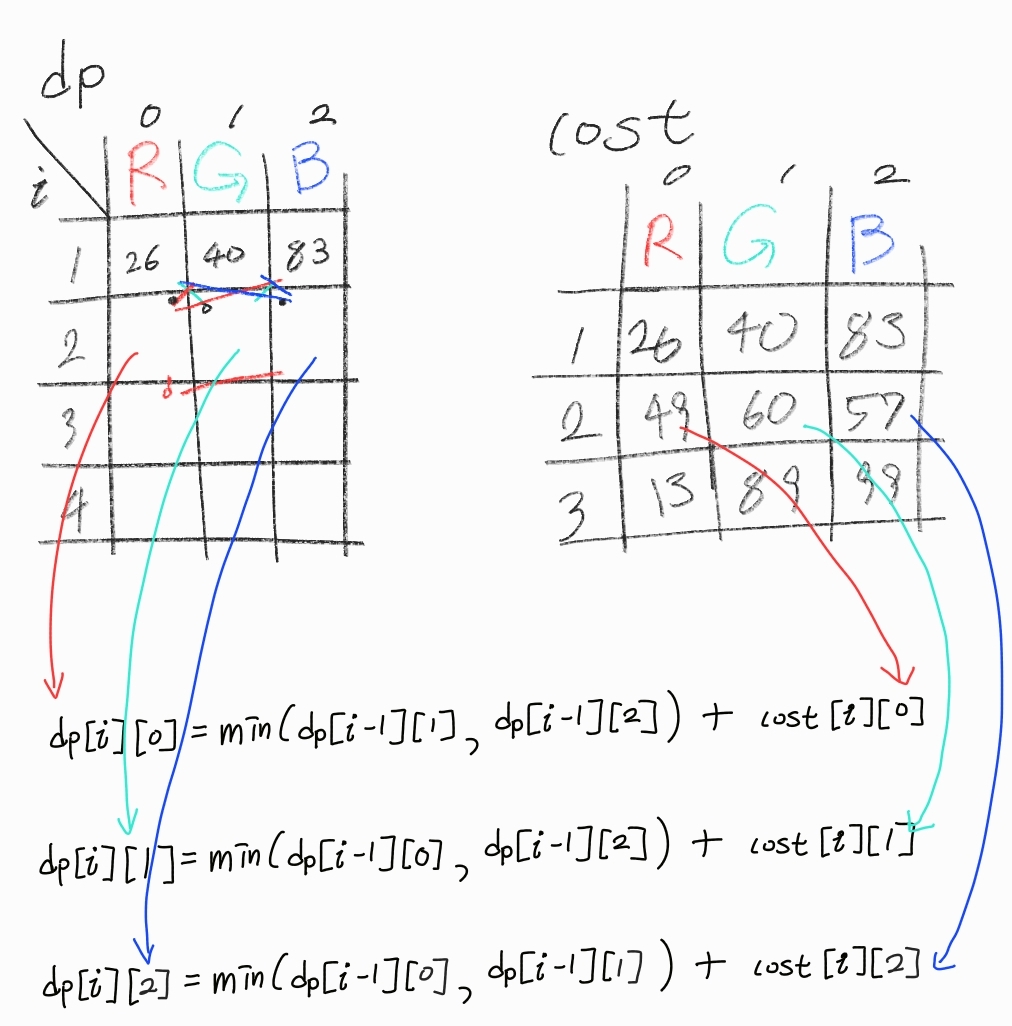 dp
0 1 2
i R G B
1 26 40 83
2
3
4
cost
0 1 2
R G B
1 26 40 83
2 49 60 57
3 13 89 99
dp[i][0] = min(dp[i-1][1], dp[i-1][2]) + cost[i][0]
dp[i][1] = min(dp[i-1][0], dp[i-1][2]) + cost[i][1]
dp[i][2] = min(dp[i-1][0], dp[i-1][1]) + cost[i][2]